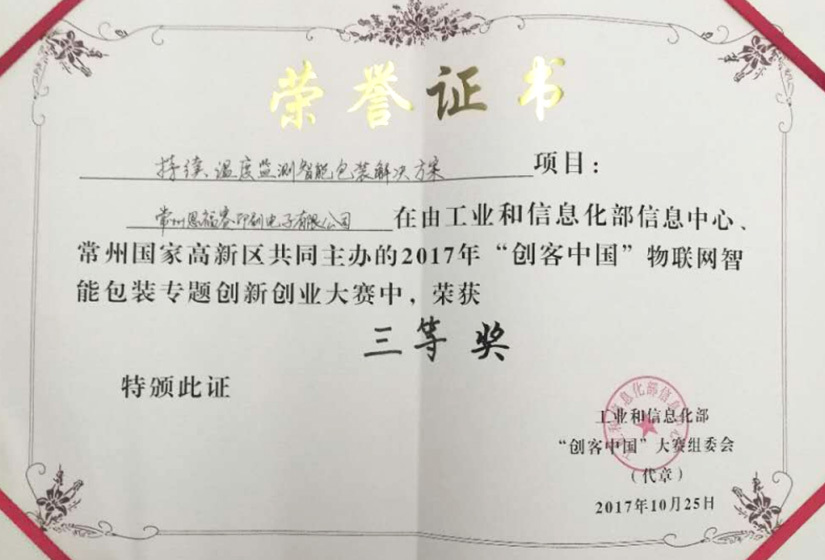 荣誉证书
持续温度监测智能包装解决方案 项目：
常州恩福赛印刷电子有限公司 在由工业和信息化部信息中心、
常州国家高新区共同主办的2017年“创客中国”物联网智
能包装专题创新创业大赛中，荣获
三等奖
特颁此证
工业和信息化部
“创客中国”大赛组委会
（代章）
2017年10月25日